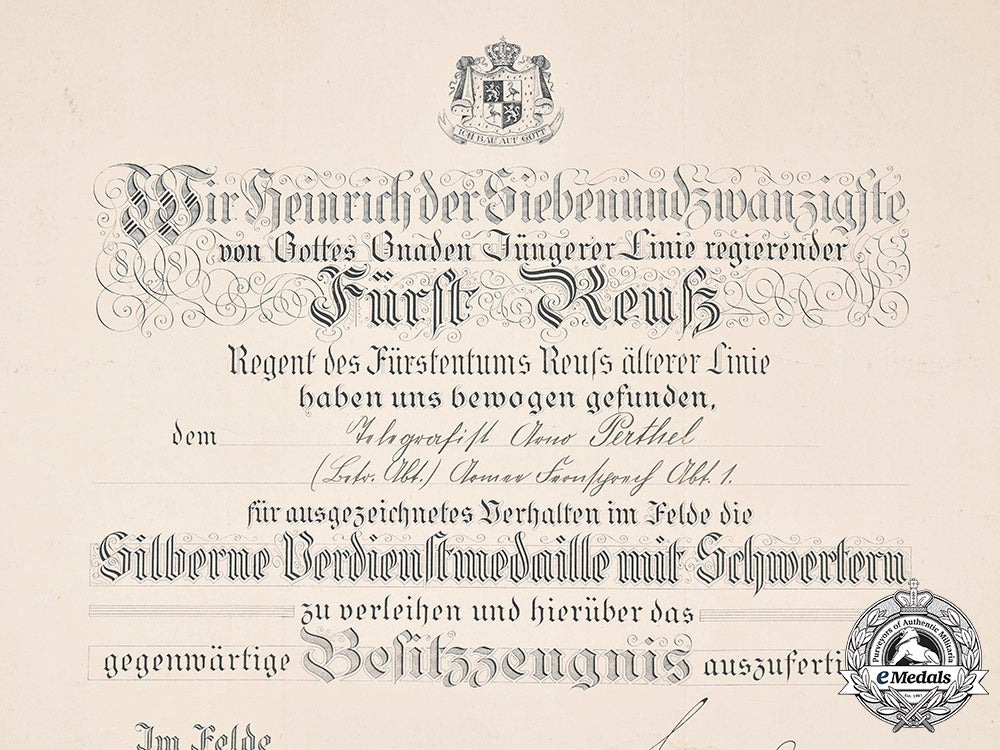 ICH BAU AUF GOTT
Wir Heinrich der Siebenundzwanzigste
von Gottes Gnaden Jüngerer Linie regierender
Fürst Reuß
Regent des Fürstentums Reuss älterer Linie
haben uns bewogen gefunden,
dem Telegrafist Arno Perthel
(Betr. Abt.) Armee Fernsprech Abt. 1.
für ausgezeichnetes Verhalten im Felde die
Silberne Verdienstmedaille mit Schwertern
zu verleihen und hierüber das
gegenwärtige Besitzzeugnis auszuferti
Im Felde
Purveyors of Authentic Militaria
eMedals